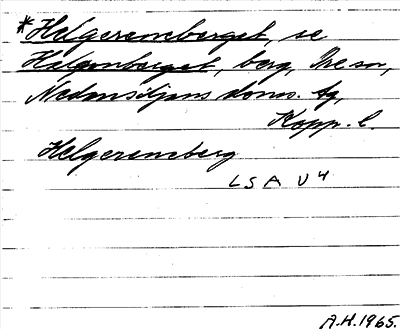 *Helgerensberget, se
Helgonberget, berg, Ore sn,
Nedansiljans doms. tg,
Kopp. l.
Helgerensberg
LSA U4
A.H. 1965.